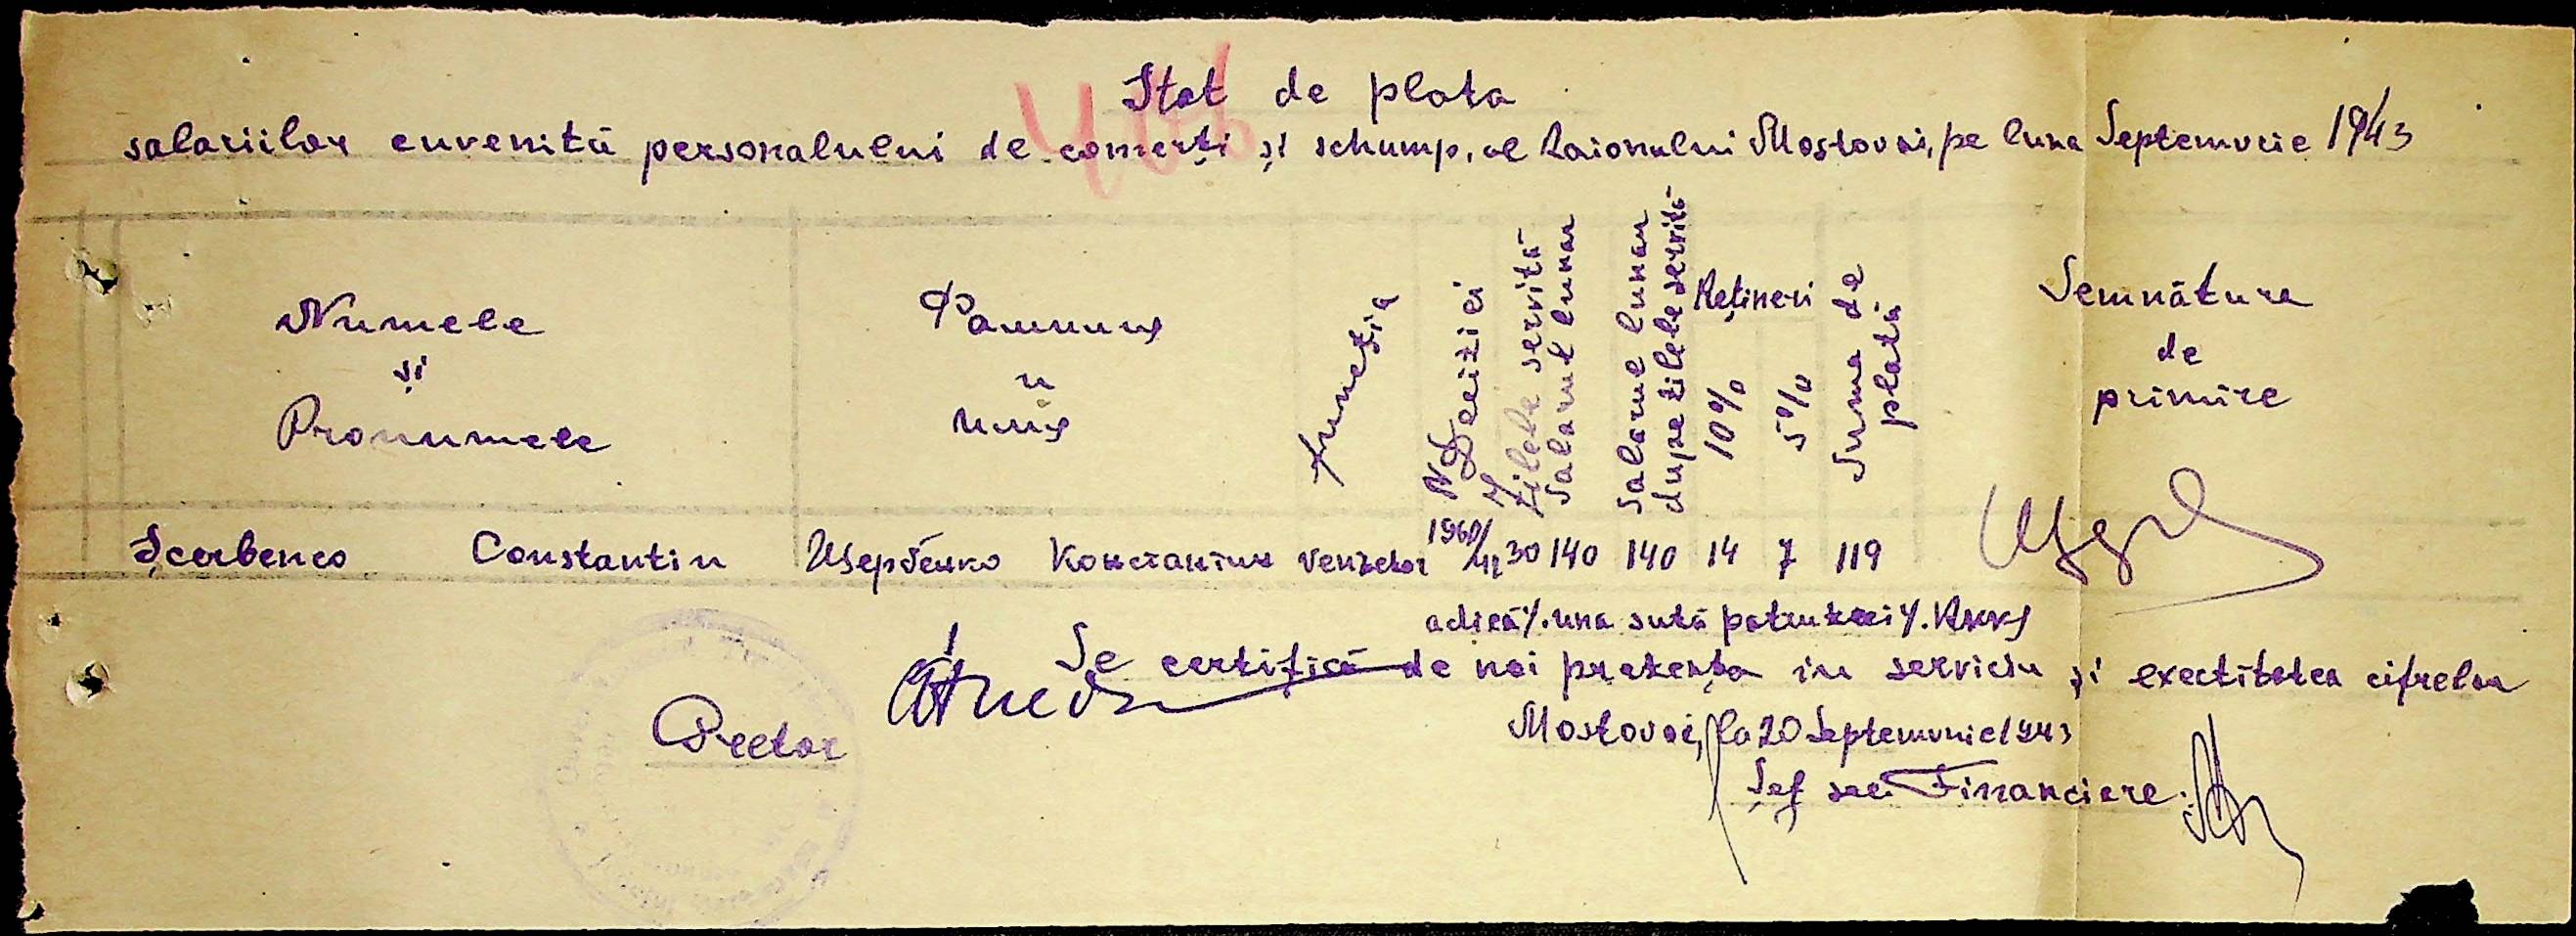 Stat de plata
salariilor cuvenită personalului de comerți și schump, al Raionului Mostovoi, pe luna Septemvrie 1943
Numele
și
Pronumele
Фамилия
и
Имя
Funcția
№ Deciziei
Zilele servită
Salarul lunar
Salarul lunar
dupa zilele servită
Rețineri
10%
5%
Suma de
plată
Semnătura
de
primire
Șcerbenco Constantin Щербенко Константин Venzetor 1960/42 30 140 140 14 7 119
adică /. una sută patruzeci /.
Se certifică de noi prezența in serviciu și exectitatea cifrelor
Pretor
Mostovoi, la 20 Septemvrie 1943
Șef sec. Financiare